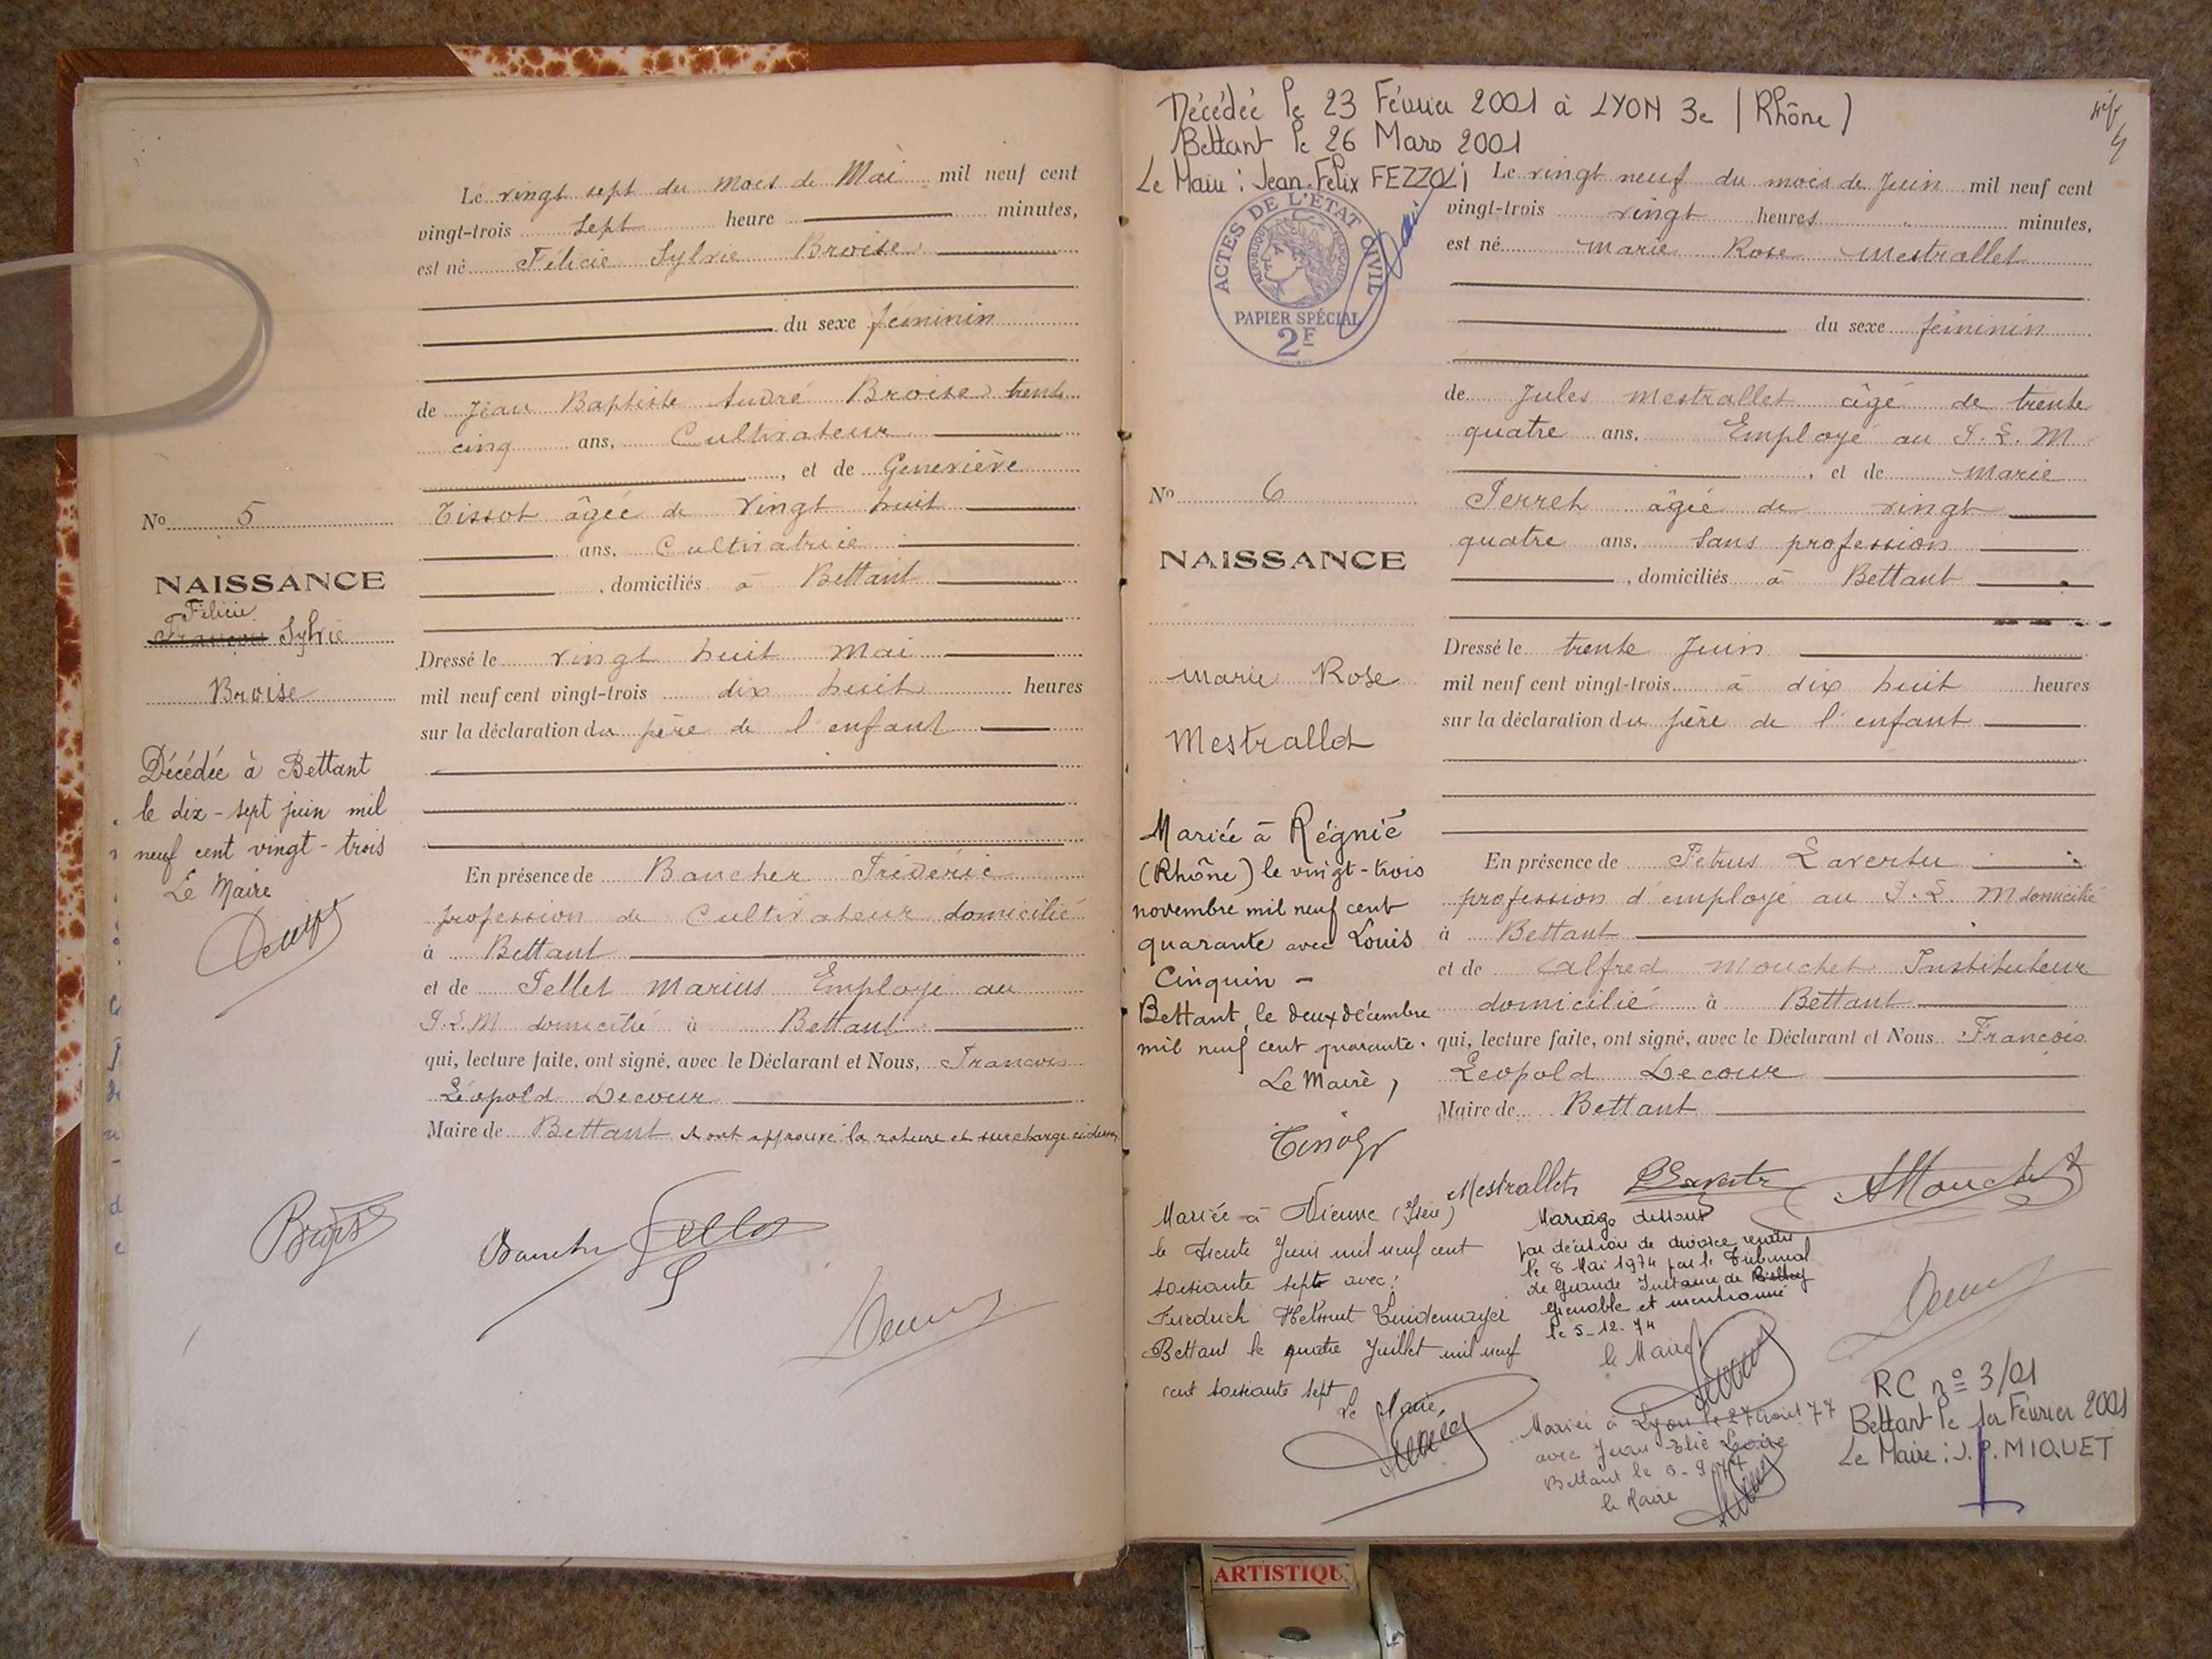 Le vingt sept du mois de Mai mil neuf cent
vingt-trois sept heure minutes,
est né Félicie Sylvie Broise
du sexe féminin
de Jean Baptiste André Broise trente
cinq ans, Cultivateur
, et de Geneviève
Tissot âgée de vingt huit
ans, Cultivatrice
, domiciliés à Bettant
Dressé le vingt huit Mai
mil neuf cent vingt-trois dix huit heures
sur la déclaration du père de l'enfant
En présence de Baucher Frédéric
profession de Cultivateur domicilié
à Bettant
et de Pellet Marius Employé au
P.L.M domicilié à Bettant
qui, lecture faite, ont signé, avec le Déclarant et Nous, François
Léopold Decour
Maire de Bettant et ont approuvé la rature et surcharge ci dessus
No 5
NAISSANCE
Félicie
François Sylvie
Broise
Décédée à Bettant
le dix-sept juin mil
neuf cent vingt-trois
Le Maire
Décédée le 23 Février 2001 à LYON 3e (Rhône)
Bettant le 26 Mars 2001
Le Maire : Jean-Felix FEZZOLI
ACTES DE L'ETAT CIVIL
REPUBLIQUE FRANÇAISE
PAPIER SPÉCIAL
2F
Le vingt neuf du mois de Juin mil neuf cent
vingt-trois vingt heures minutes,
est né Marie Rose Mestrallet
du sexe féminin
de Jules Mestrallet âgé de trente
quatre ans, Employé au P.L.M
, et de Marie
Perret âgée de vingt
quatre ans, Sans profession
, domiciliés à Bettant
Dressé le trente Juin
mil neuf cent vingt-trois à dix huit heures
sur la déclaration du père de l'enfant
En présence de Petrus Lavertu
profession d'employé au P.L.M domicilié
à Bettant
et de Alfred Mouchet Instituteur
domicilié à Bettant
qui, lecture faite, ont signé, avec le Déclarant et Nous François
Léopold Decour
Maire de Bettant
No 6
NAISSANCE
Marie Rose
Mestrallet
Mariée à Régnié
(Rhône) le vingt-trois
novembre mil neuf cent
quarante avec Louis
Cinquin -
Bettant, le deux décembre
mil neuf cent quarante.
Le Maire,
Mestrallet Lavertu AMouchet
Mariée à Vienne (Isère)
le trente Juin mil neuf cent
soixante sept avec :
Friedrich Helmut
Bettant le quatre Juillet mil neuf
cent soixante sept
Le Maire,
Mariage dissous
par décision de divorce rendu
le 8 Mai 1974 par le Tribunal
de Grande Instance de
Grenoble et mentionné
le 5-12-74
le Maire
Mariée à Lyon le 27 août 77
avec Jean Elie
Bettant le
le Maire
RC nº 3/01
Bettant le 1er Février 2001
Le Maire : J.P. MIQUET
ARTISTIQU